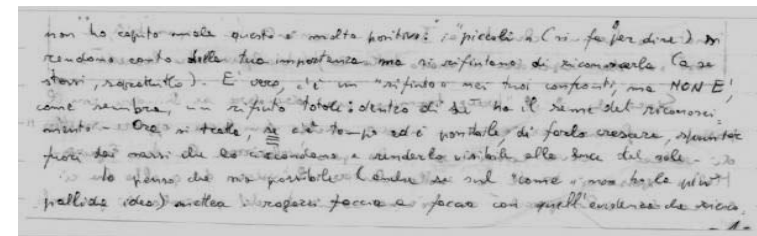 non ho capito male questo è molto positivo: i "piccoli" (si fa per dire) si
rendono conto della tua importanza ma si rifiutano di riconoscerla (a se
stessi, soprattutto). E' vero, c'è un "rifiuto" nei tuoi confronti, ma NON E',
come sembra, un rifiuto totale: dentro di sè ha il seme del riconosci=
mento - Ora si tratta, se c'è tempo ed è possibile, di farlo crescere, spuntar
fuori dai sassi che lo circondano, e renderlo visibile alla luce del sole -
Io penso che sia possibile (anche se sul "come" non ho la più
pallida idea) mettere i ragazzi faccia a faccia con quell'evidenza che